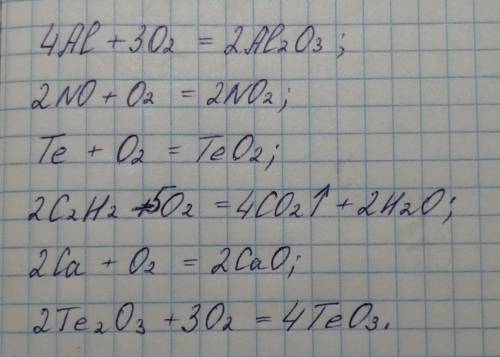 4Al + 3O₂ = 2Al₂O₃;
2NO + O₂ = 2NO₂;
Te + O₂ = TeO₂;
2C₂H₂ + 5O₂ = 4CO₂↑ + 2H₂O;
2Ca + O₂ = 2CaO;
2Te₂O₃ + 3O₂ = 4TeO₃.